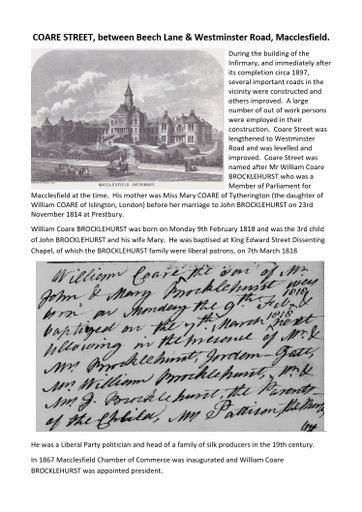 COARE STREET, between Beech Lane & Westminster Road, Macclesfield.
During the building of the
Infirmary, and immediately after
its completion circa 1897,
several important roads in the
vicinity were constructed and
others improved. A large
number of out of work persons
were employed in their
construction. Coare Street was
lengthened to Westminster
Road and was levelled and
improved. Coare Street was
named after Mr William Coare
BROCKLEHURST who was a
Member of Parliament for
MACCLESFIELD INFIRMARY
Macclesfield at the time. His mother was Miss Mary COARE of Tytherington (the daughter of
William COARE of Islington, London) before her marriage to John BROCKLEHURST on 23rd
November 1814 at Prestbury.
William Coare BROCKLEHURST was born on Monday 9th February 1818 and was the 3rd child
of John BROCKLEHURST and his wife Mary. He was baptised at King Edward Street Dissenting
Chapel, of which the BROCKLEHURST family were liberal patrons, on 7th March 1818
William Coare the son of Mr.
John & Mary Brocklehurst was
born on Monday the 9th Feby 1818
baptized on the 7th March 1818 next
following in the presence of Mr. &
Mrs. Brocklehurst, Jordan-Gate,
Mrs. William Brocklehurst, Mr. &
Mrs. J. Brocklehurst, the Parents
of the Child, Mrs Pattison, the
He was a Liberal Party politician and head of a family of silk producers in the 19th century.
In 1867 Macclesfield Chamber of Commerce was inaugurated and William Coare
BROCKLEHURST was appointed president.